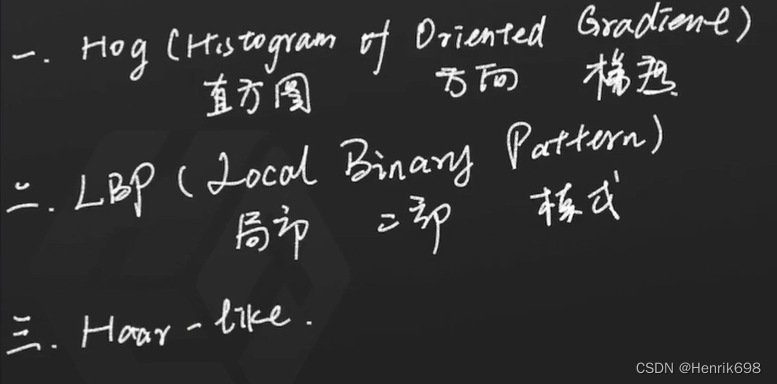 一. Hog (Histogram of Oriented Gradient)
直方图 方向 梯恐
二. LBP (Local Binary Pattern)
局部 二部 模式
三. Haar-like.
CSDN @Henrik698